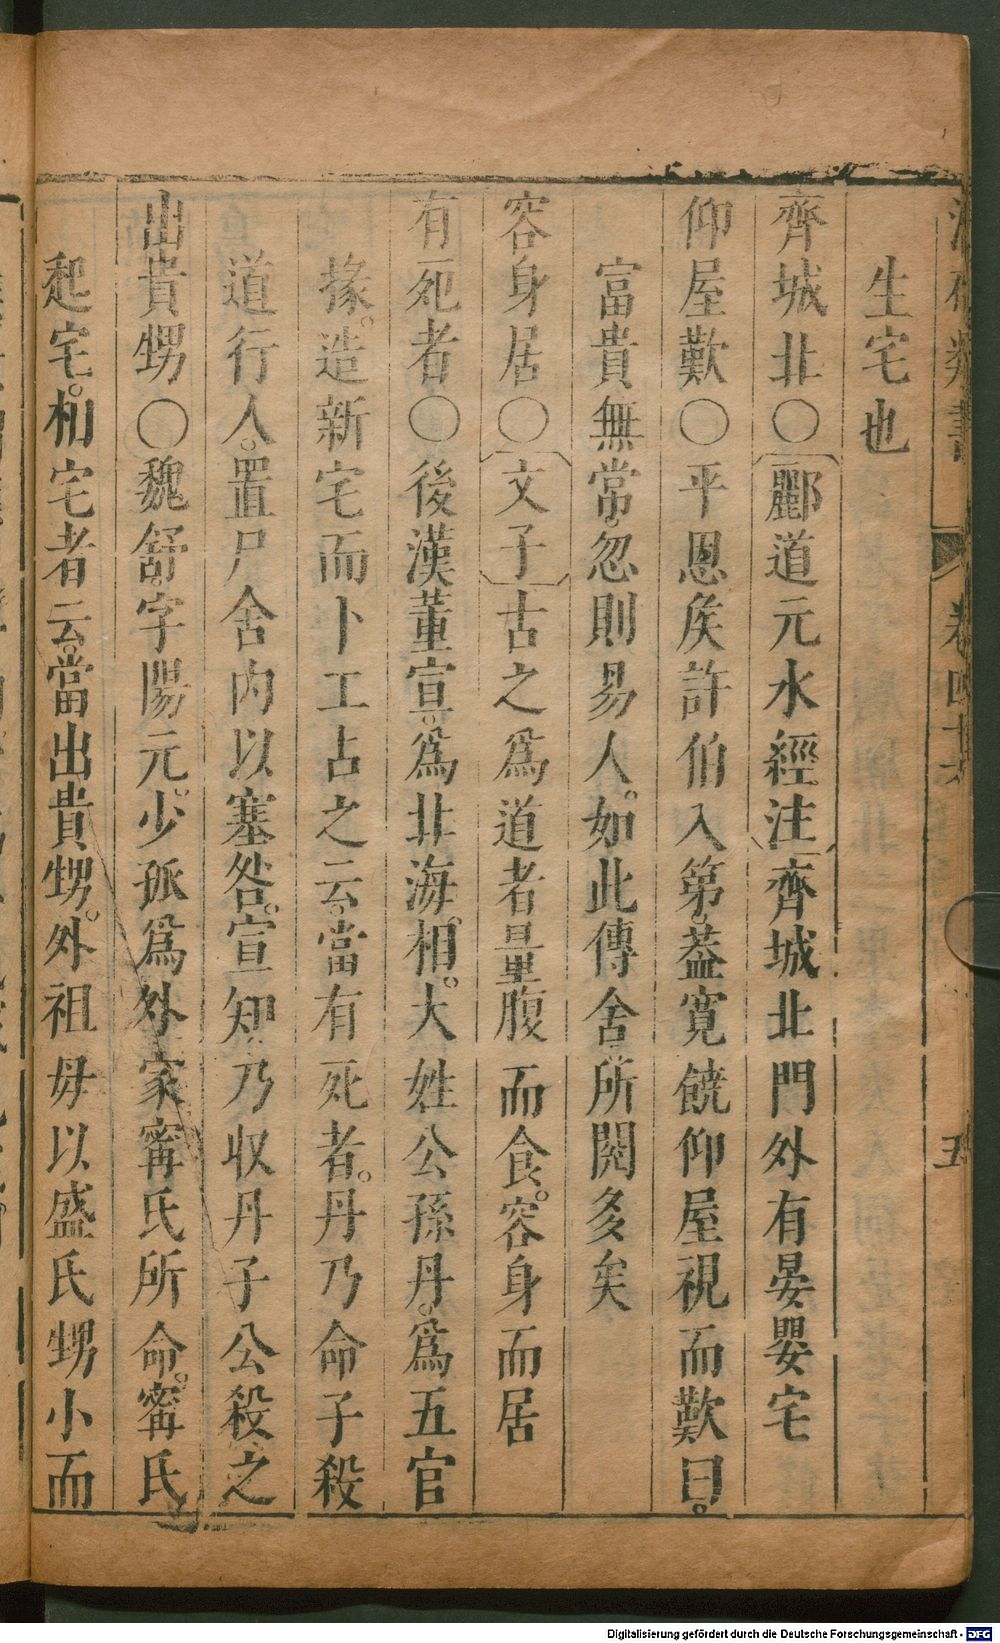 類書 卷四十六 五
生宅也
齊城北○酈道元水經注齊城北門外有晏嬰宅
仰屋歎○平恩矦許伯入第。葢寬饒仰屋視而歎曰。
富貴無常。忽則易人。如此傳舍。所閱多矣
容身居○文子古之爲道者量腹而食。容身而居
有死者○後漢董宣。爲北海相。大姓公孫丹。爲五官
掾。造新宅而卜工占之云。當有死者。丹乃命子殺
道行人。置尸舍内以塞咎。宣知。乃収丹子公殺之
出貴甥○魏舒。字陽元。少孤爲外家甯氏所命。甯氏
起宅。相宅者云。當出貴甥。外祖母以盛氏甥小而
Digitalisierung gefördert durch die Deutsche Forschungsgemeinschaft - DFG